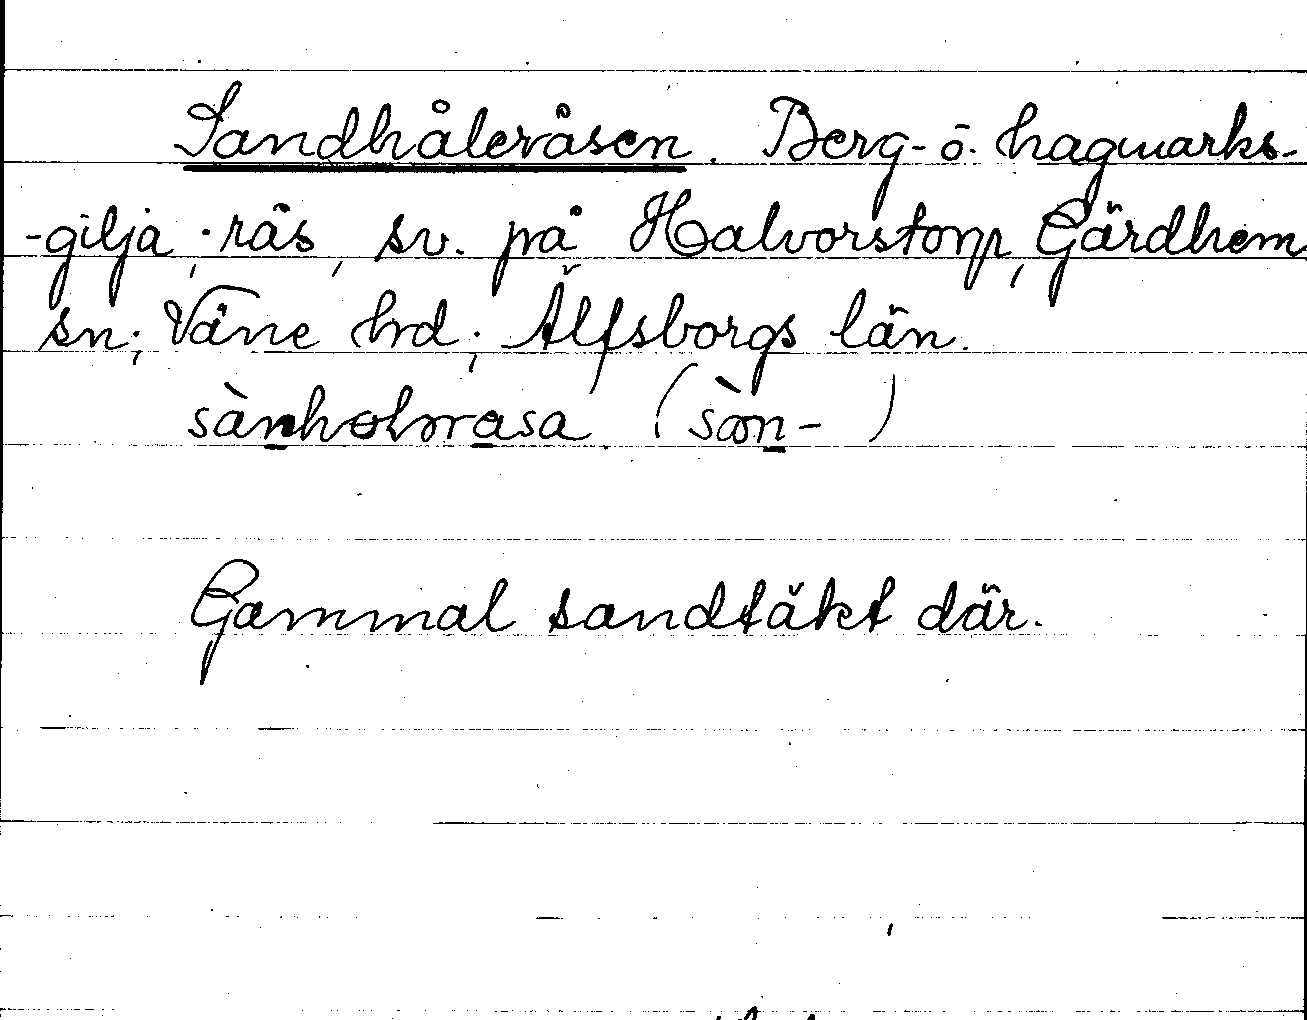 Sandhåleråsen. Berg- o. hagmarks-
-gilja, ·rås, sv. på Halvorstorp, Gärdhem
sn; Väne hd; Älfsborgs län.
sànholrasa (sòn- )
Gammal sandtäkt där.